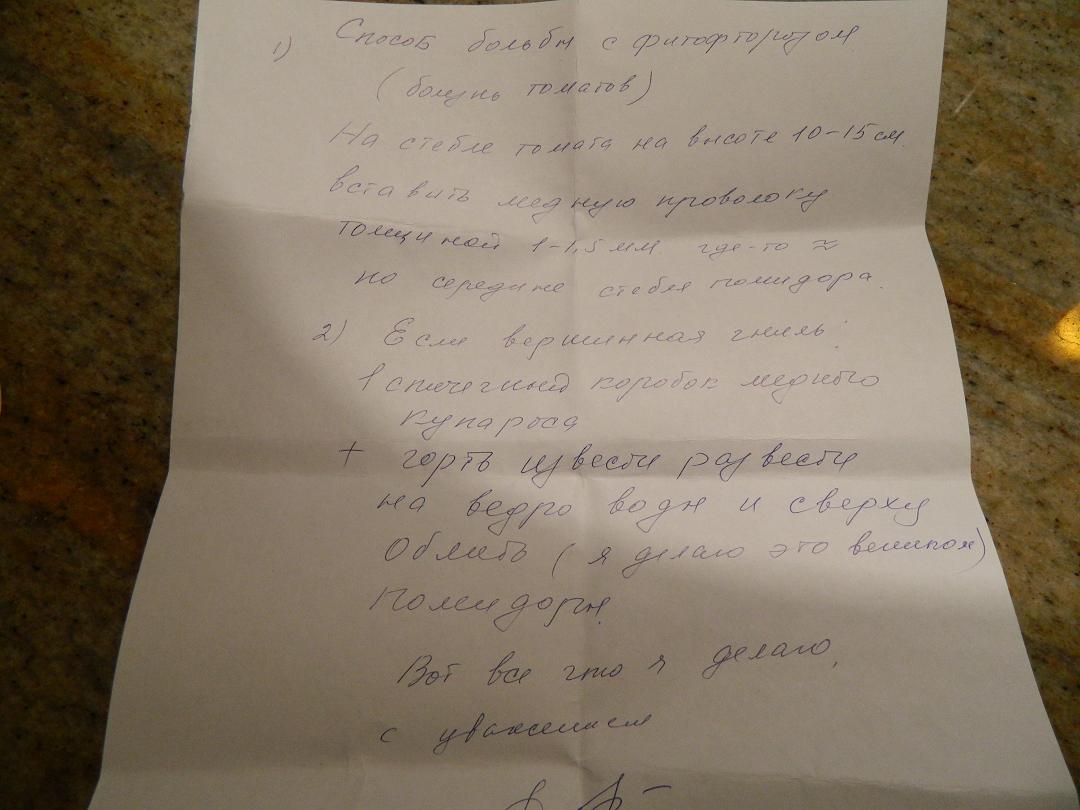 1) Способ больбы с фитофторозом
(болезнь томатов)
На стебле томата на высоте 10-15 см.
вставить медную проволоку
толщиной 1-1,5 мм. где-то ≈
по середине стебля помидора.
2) Если вершинная гниль:
1 спичечный коробок медного
купароса
+ горть извести развести
на ведро воды и сверху
Облить (я делаю это веником)
помидоры.
Вот все что я делаю,
с уважением